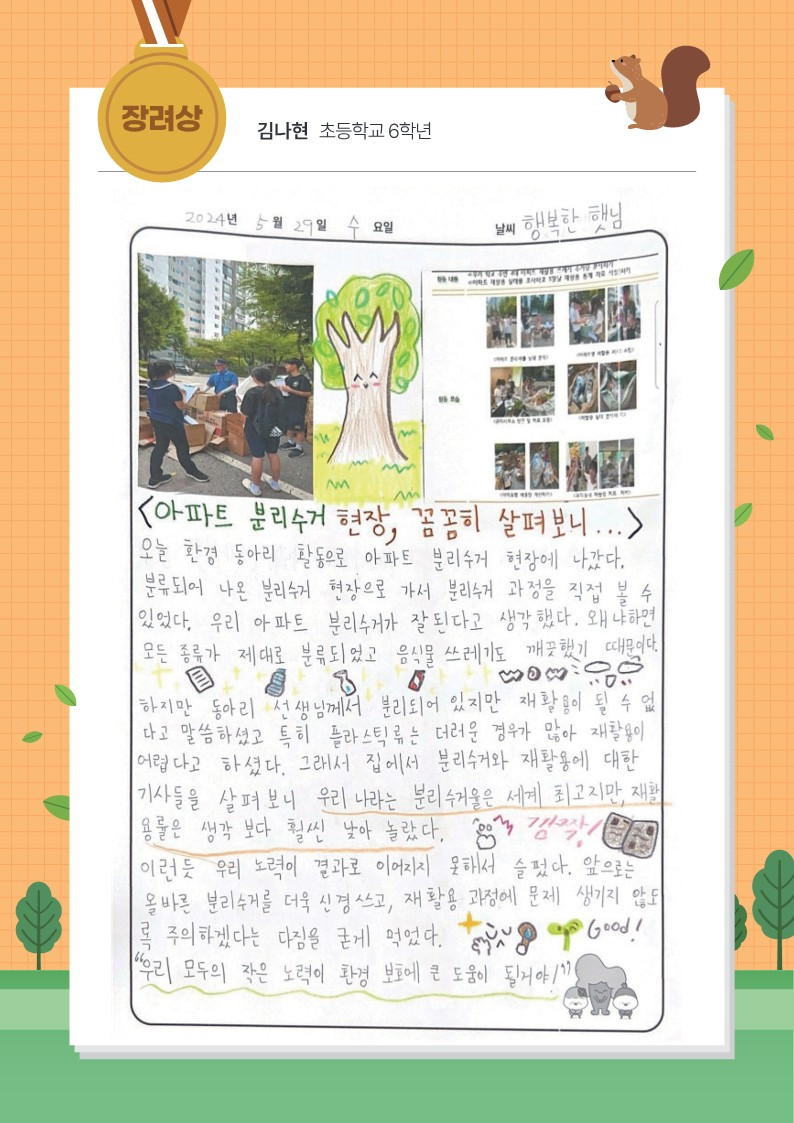 장려상
김나현 초등학교 6학년
2024년 5월 29일 수 요일
날씨 행복한 햇님
활동 내용
활동 모습
<아파트 분리수거 현장, 꼼꼼히 살펴보니...>
오늘 환경 동아리 활동으로 아파트 분리수거 현장에 나갔다.
분류되어 나온 분리수거 현장으로 가서 분리수거 과정을 직접 볼 수
있었다. 우리 아파트 분리수거가 잘 된다고 생각했다. 왜냐하면
모든 종류가 제대로 분류되었고 음식물 쓰레기도 깨끗했기 때문이다.
하지만 동아리 선생님께서 분리되어 있지만 재활용이 될 수 없
다고 말씀하셨고 특히 플라스틱류는 더러운 경우가 많아 재활용이
어렵다고 하셨다. 그래서 집에서 분리수거와 재활용에 대한
기사들을 살펴보니 우리 나라는 분리수거율은 세계 최고지만, 재활
용률은 생각 보다 훨씬 낮아 놀랐다. 깜짝!
이런듯 우리 노력이 결과로 이어지지 못해서 슬펐다. 앞으로는
올바른 분리수거를 더욱 신경쓰고, 재활용 과정에 문제 생기지 않도
록 주의하겠다는 다짐을 굳게 먹었다. Good!
"우리 모두의 작은 노력이 환경 보호에 큰 도움이 될거야!"